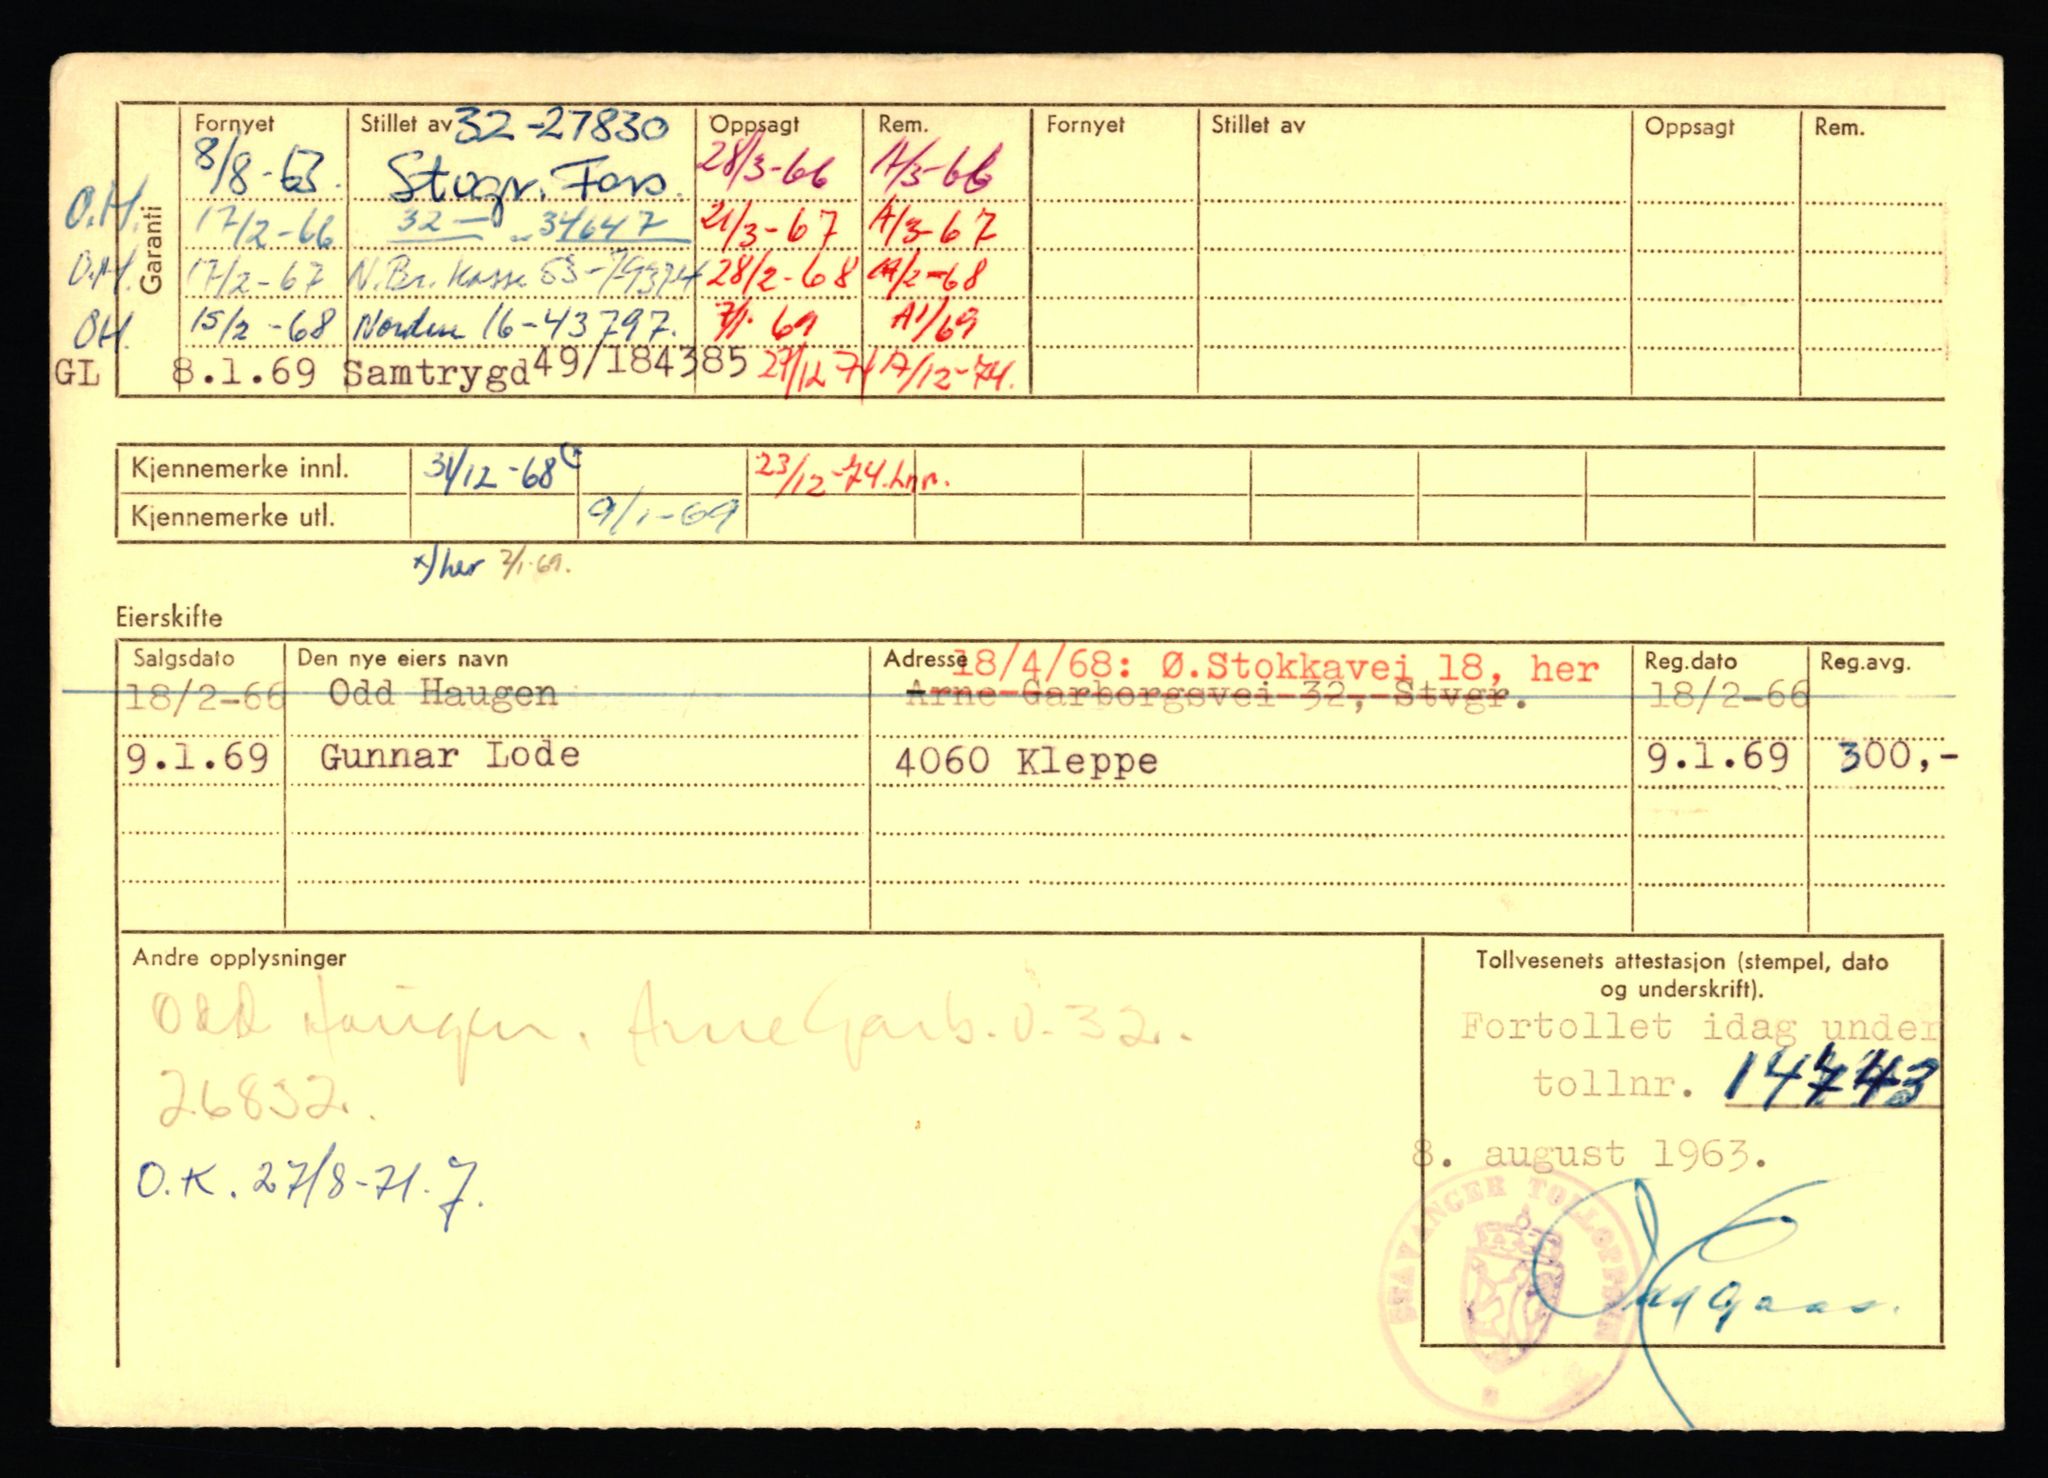 Garanti
Fornyet Stillet av 32-27830 Oppsagt Rem. Fornyet Stillet av Oppsagt Rem.
8/8-63. Stvgr. Fors. 28/3-66 A/3-66
O.H. 17/2-66 32 — „ 34647 21/3-67 A/3-67
O.H. 17/2-67 N.Br.kasse 53-79374 28/2-68 /2-68
OH. 15/2-68 Norden 16-43797. 7/1-69 A1/69
GL 8.1.69 Samtrygd 49/184385 27/12 74 17/12-74.
Kjennemerke innl. 31/12-68 23/12-74.
Kjennemerke utl. 9/1-69
x) her 7/1-69.
Eierskifte
Salgsdato Den nye eiers navn Adresse 18/4/68: Ø.Stokkavei 18, her Reg.dato Reg.avg.
18/2-66 Odd Haugen Arne Garborgsvei 32, Stvgr. 18/2-66
9.1.69 Gunnar Lode 4060 Kleppe 9.1.69 300,-
Andre opplysninger
Odd Haugen. Arne Garb.v. 32.
26832.
O.K. 27/8-71. J.
Tollvesenets attestasjon (stempel, dato
og underskrift).
Fortollet idag under
tollnr. 14743
8. august 1963.
STAVANGER TOLLOPPSYN